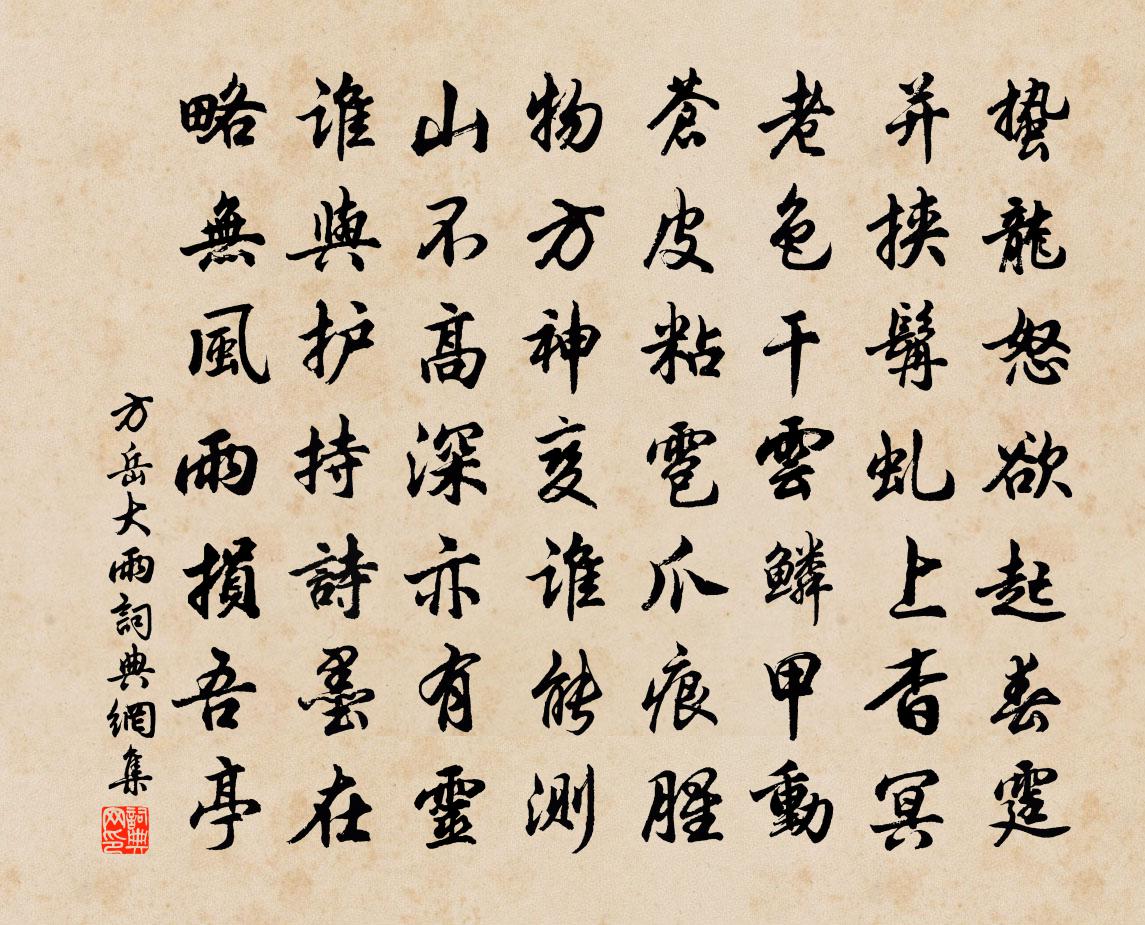 蟄龍怒欲起春霆
并挾髯虬上杳冥
老色干雲鱗甲動
蒼皮粘雹爪痕腥
物方神變誰能測
山不高深亦有靈
誰與护持詩墨在
略無風雨損吾亭
方岳大雨詞典網集
詞典网印